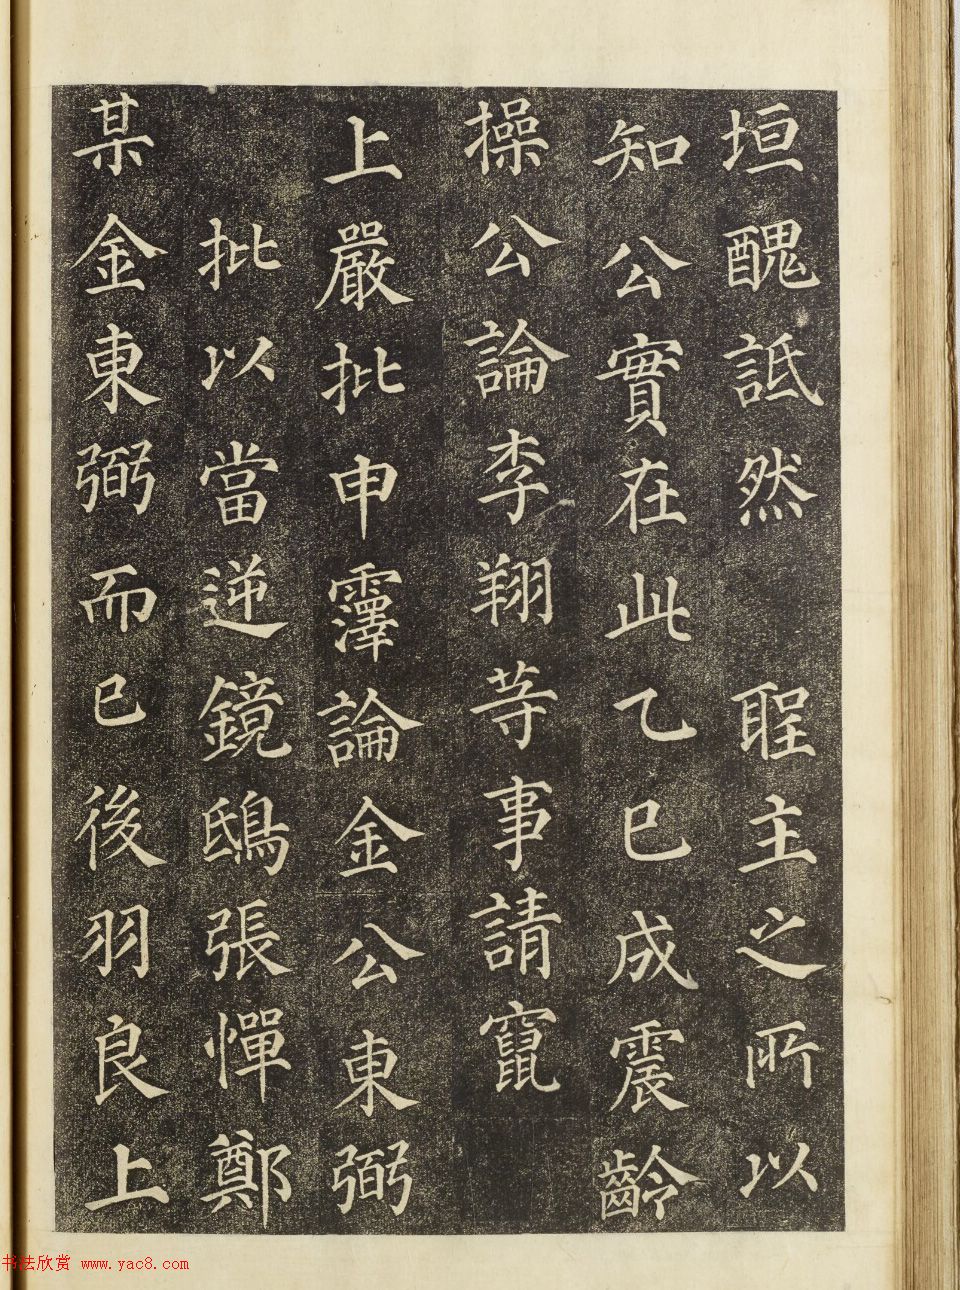 垣醜詆然 聖主之所以
知公實在此乙巳成震齡
操公論李翔等事請竄
上嚴批申霪論金公東弼
批以當递鏡鴟張憚鄭
某金東弼而已後羽良上
书法欣赏 www.yac8.com